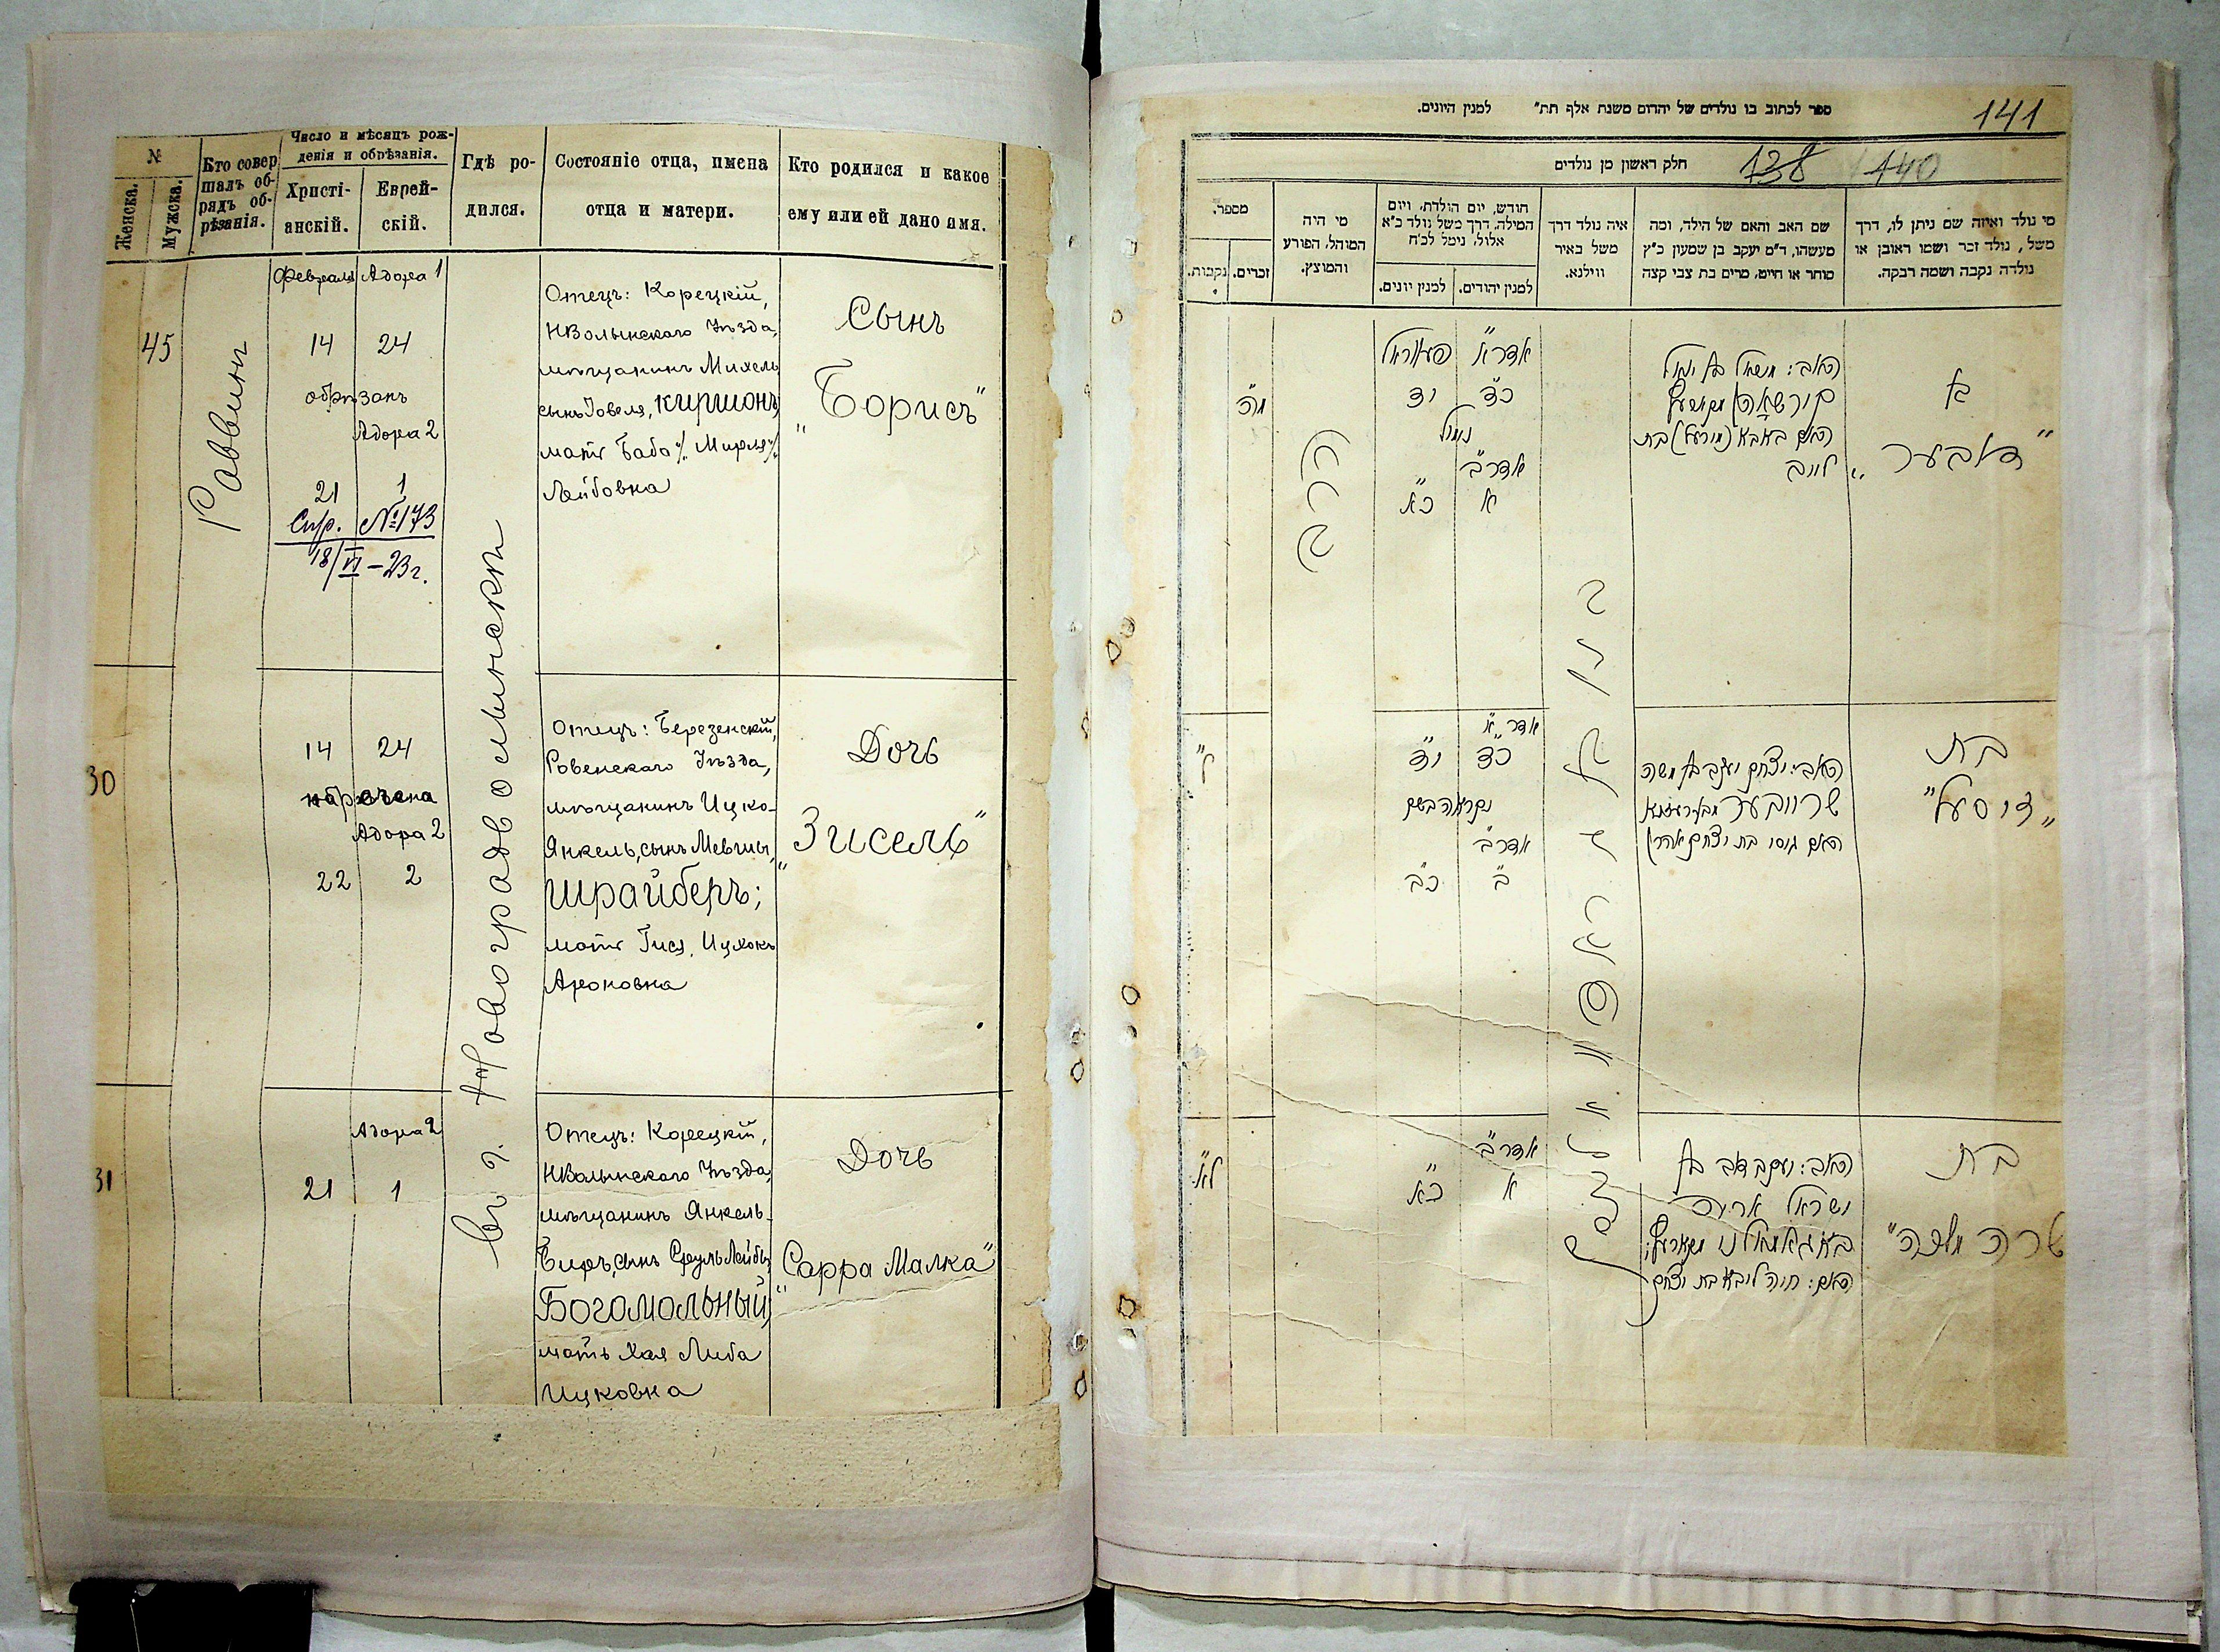 №
Женска.
Мужска.
Кто совер
шалъ об-
рядъ об-
рѣзанія.
Число и мѣсяцъ рож-
денія и обрѣзанія.
Христі-
анскій.
Еврей-
скій.
Гдѣ ро-
дился.
Состояніе отца, имена
отца и матери.
Кто родился и какое
ему или ей дано имя.
45
Раввинъ
Февраля Адора 1
14 24
обрѣзанъ
Адора 2
21 1
Спр. № 173
18/VI – 23 г.
въ г. Новоградволынскѣ
Отецъ: Корецкій,
НВолынскаго Уѣзда,
мѣщанинъ Михель
сынъ Іовеля, Киршонъ,
мать Баба /. Мирля /.
Лейбовна
Сынъ
„Борисъ"
30
14 24
наречена
Адора 2
22 2
Отецъ: Березенскій,
Ровенскаго Уѣзда,
мѣщанинъ Ицко-
Янкель, сынъ Мевшы,
Шрайберъ;
мать Гися, Ицхокъ
Ароновна
Дочь
„Зисель"
31
Адора 2
21 1
Отецъ: Корецкій,
НВолынскаго Уѣзда,
мѣщанинъ Янкель-
Беръ, сынъ Сруль Лейбы
Богомольный,
мать Хая Либа
Ицковна
Дочь
„Сарра Малка"
ספר לכתוב בו נולדים של יהדום משנת אלף תת״ למנין היונים.
141
חלק ראשון מן נולדים
138 140
מי נולד ואיזה שם ניתן לו, דרך
משל, נולד זכר ושמו ראובן או
נולדה נקבה ושמה רבקה.
שם האב והאם של הילד, ומה
מעשהו, ד״מ יעקב בן שמעון כ״ץ
סוחר או חייט, מרים בת צבי קצה
איה נולד דרך
משל באיר
ווילנא.
חודש, יום הולדת, ויום
המילה, דרך משל נולד כ״א
אלול, נימל לכ״ח
למנין יהודים.
למנין יונים.
מי היה
המוהל, הפורע
והמוצץ.
מספר.
זכרים.
נקבות.
בן
„דאבער"
האב: מיכאל בן יואל
האם באבא (מירעל) בת
לייב
אדר א׳ פעווראל
כ״ד י״ד
נימול
אדר ב׳
א כ״א
הרב
מ״ה
בת
„זיסעל"
האב: יצחק יעקב בן משה
שרייבער
האם גיסי בת יצחק אהרן
אדר א׳
כ״ד י״ד
נקראה בשם
אדר ב׳
ב׳ כ״ב
ל׳
בת
„שרה מלכה"
האב: יעקב דוב בן
ישראל אריה
האם: חיה ליבא בת יצחק
אדר ב׳
א כ״א
ל״א